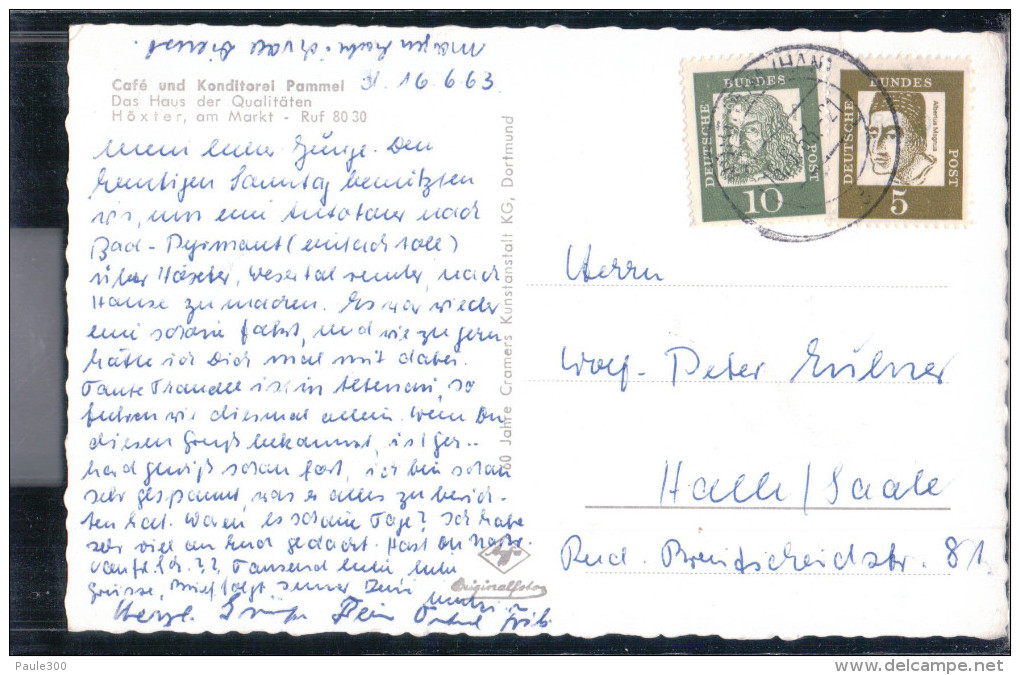 morgen
16.6.63
Café und Konditorei Pammel
Das Haus der Qualitäten
Höxter, am Markt - Ruf 8030
mein lieber Junge. Den
heutigen Sonntag benützten
wir, um eine Autotour nach
Bad-Pyrmont (einfach toll)
über Höxter, Wesertal runter, nach
Hause zu machen. Es war wieder
eine schöne Fahrt, und wie zu gern
hätte ich Dich mal mit dabei.
Tante ist in Altenau, so
fuhren wir diesmal allein. Wenn Du
diesen Gruß bekommst, ist Ger-
hard gewiß schon fort, ich bin schon
sehr gespannt, was er alles zu berich-
ten hat. Waren es schöne Tage? Ich habe
sehr viel an Euch gedacht. Hast Du
Tausend liebe
Grüsse, Brief folgt, immer Deine
Herzl. Grüße Dein Onkel
60 Jahre Cramers Kunstanstalt KG, Dortmund
Agfa
Originalfoto
DEUTSCHE BUNDES POST
10
DEUTSCHE BUNDES POST
Albertus Magnus
5
(HAN
Herrn
Wolf-Peter
Halle/Saale
Rud. Breitscheidstr. 81
Paule300
www.delcampe.net